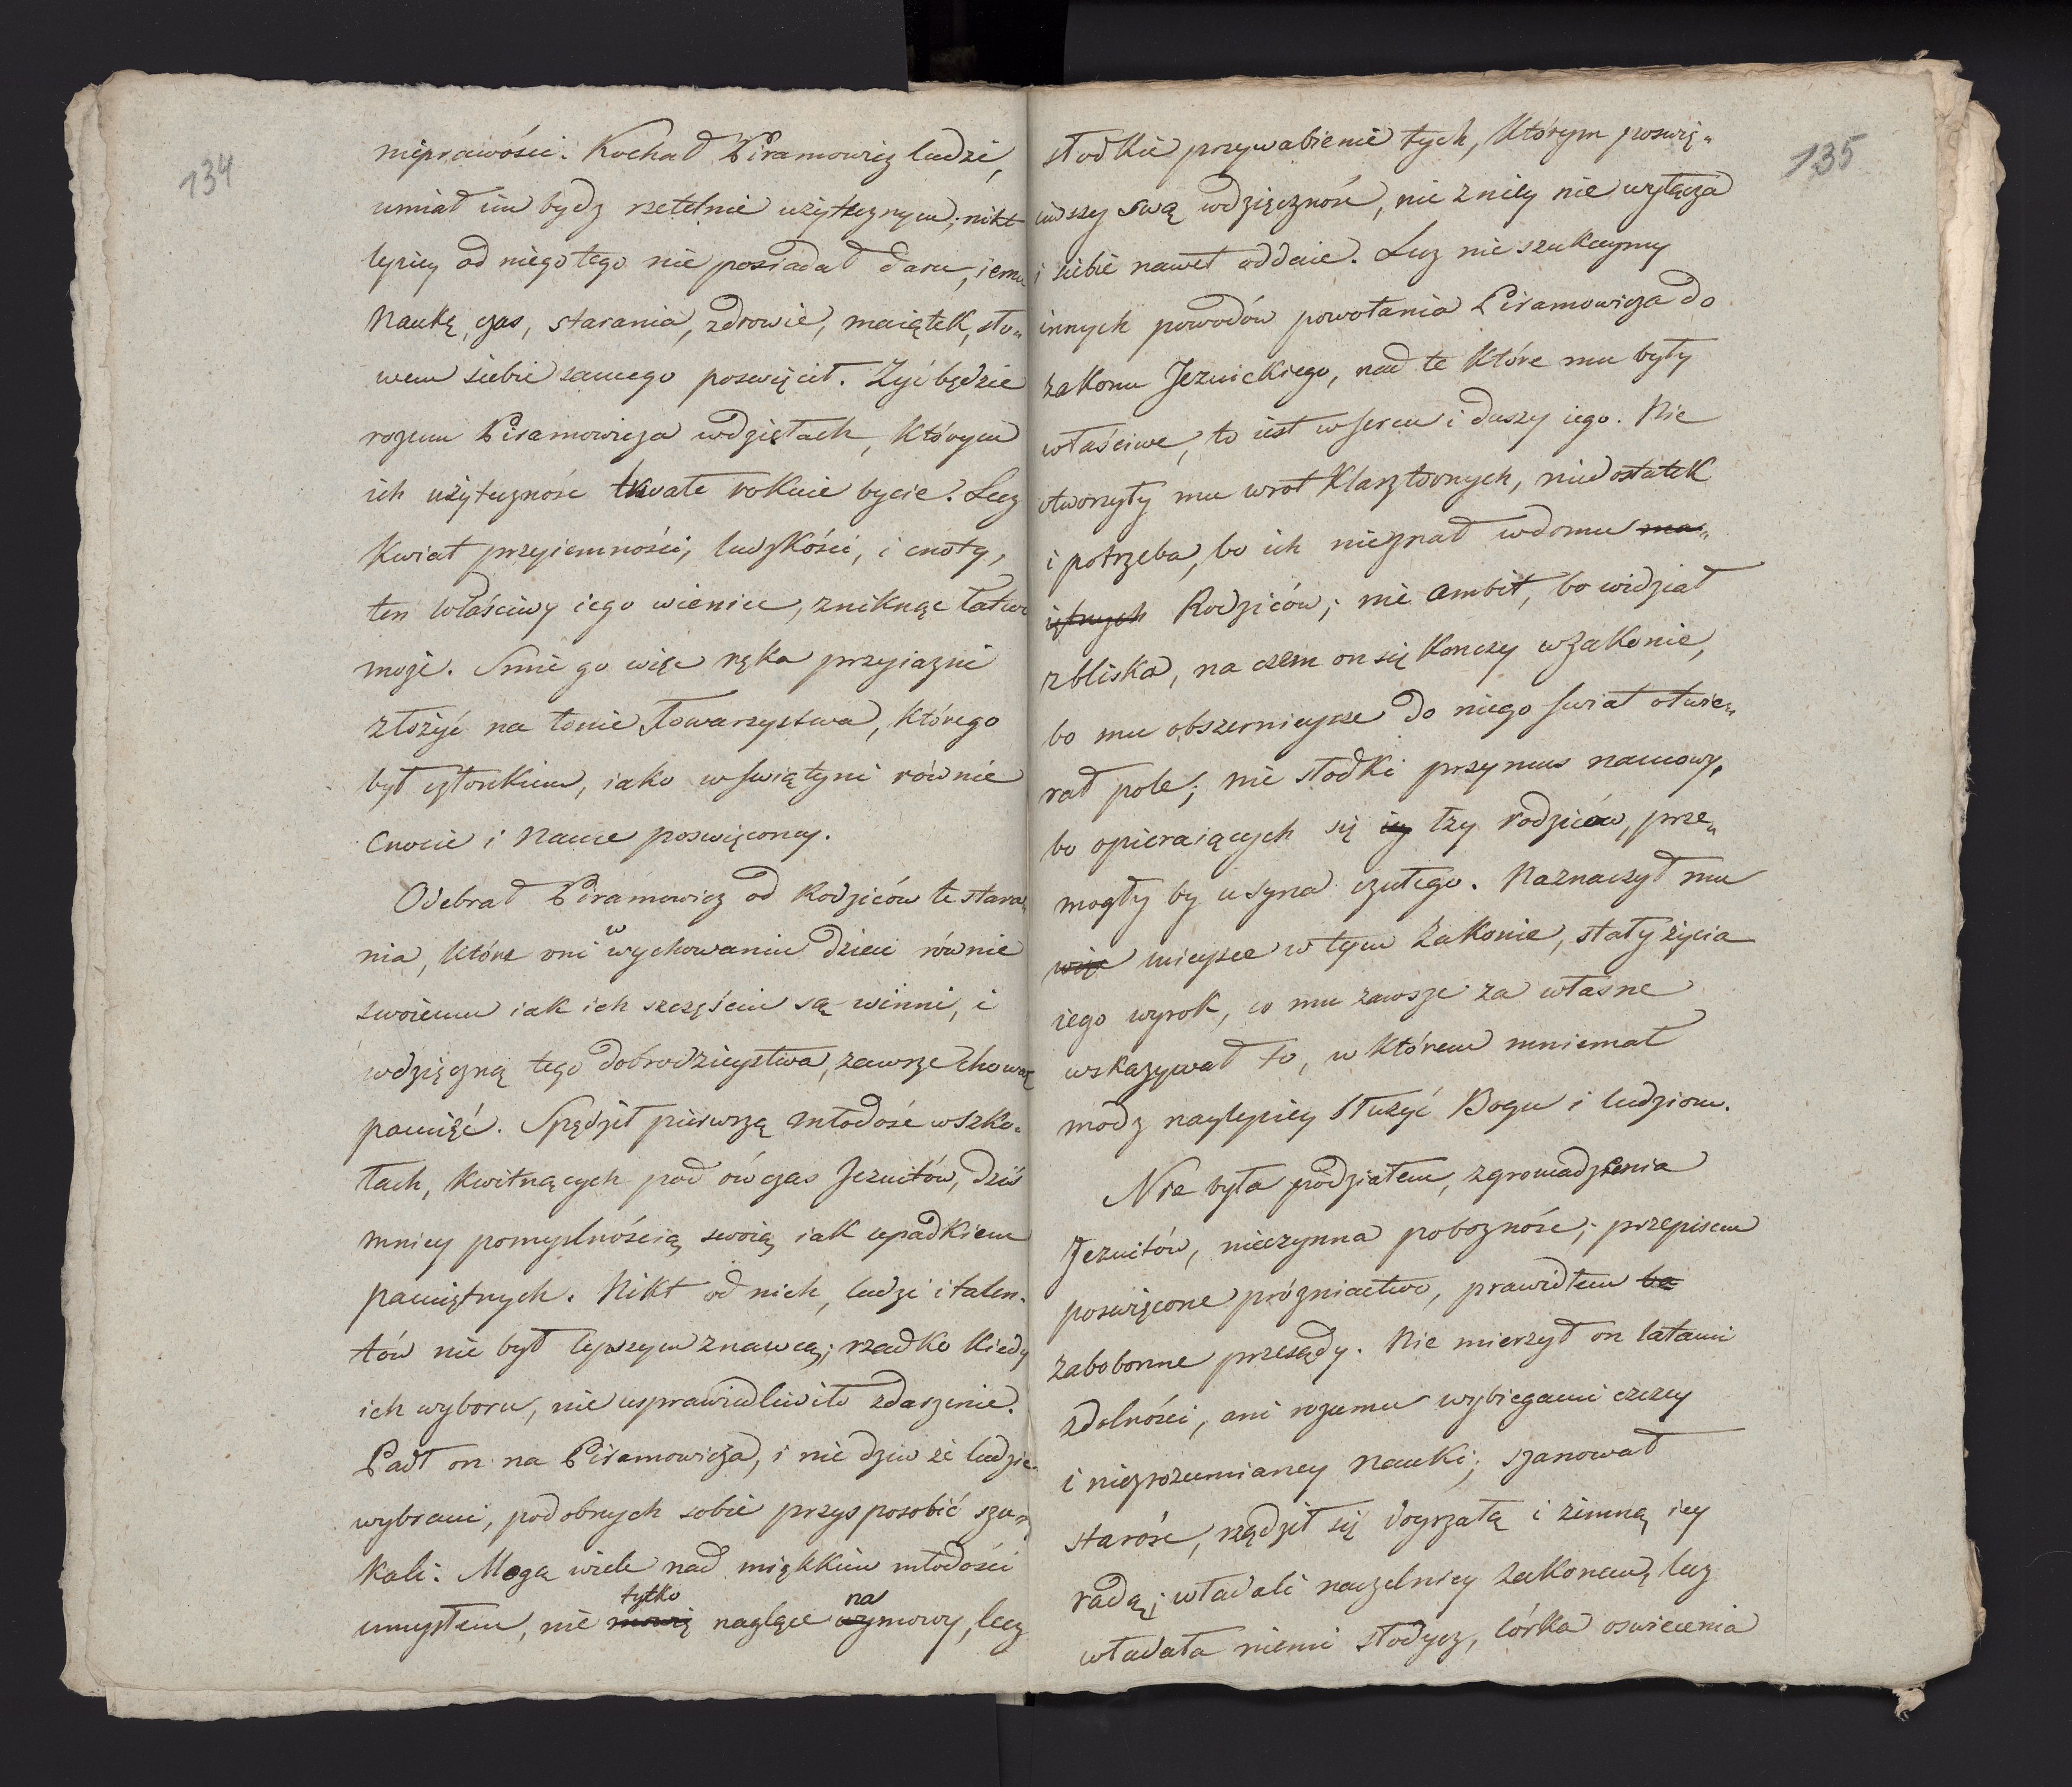 134
nieprawości. Kochał Piramowicz ludzi,
umiał im bydz rzetelnie użytecznym; nikt
lepiey od niego tego nie posiadał daru, iemu
Naukę, czas, starania, zdrowie, maiątek, sło„
wem siebie samego poswięcił. Żyć będzie
rozum Piramowicza w dziełach, którym
ich użyteczność trwałe rokuie bycie. Lecz
kwiat przyiemności, ludzkości, i cnoty,
ten właściwy iego wieniec, zniknąć łatwo
może. Smie go więc ręka przyiazni
złożyć na łonie Towarzystwa, którego
był członkiem, iako w swiątyni równie
Cnocie i Nauce poswięconey.
Odebrał Piramowicz od Rodziców te stara„
nia, które oni w wychowaniu dzieci równie
swoiemu iak ich szczęściu są winni, i
wdzięczną tego dobrodzieystwa, zawsze chował
pamięć. Spędził pierwszą młodość w szko„
łach, kwitnących pod ówczas Jezuitów, dziś
mniey pomyslnością swoią iak upadkiem
pamiętnych. Nikt od nich, ludzi i talen„
tów nie był lepszym znawcą; rzadko kiedy
ich wyboru, nie usprawiedliwiło zdarzenie.
Padł on na Piramowicza, i nie dziw że ludzie
wybrani, podobnych sobie przysposobić szu„
kali. Mogą wiele nad miękkim młodości
umysłem, nie mowię tylko naglące wymowy na, lecz
135
słodkie przywabienie tych, którym poswię„
ciwszy swą wdzięczność, nic z niey nie wyłącza
i siebie nawet oddaie. Lecz nie szukaymy
innych powodów powołania Piramowicza do
zakonu Jezuickiego, nad te które mu były
właściwe, to iest w sercu i duszy iego. Nie
otworzyły mu wrot klasztornych, niedostatek
i potrzeba, bo ich nieznał w domu ma„
iętnych Rodziców; nie ambit, bo widział
z bliska, na czem on się konczy w zakonie,
bo mu obszernieysze do niego swiat otwie„
rał pole; nie słodki przymus namowy,
bo opieraiących się iey łzy rodziców, prze„
mogły by u syna czułego. Naznaczył mu
więc mieysce w tym zakonie, stały życia
iego wyrok, co mu zawsze za własne
wskazywał to, w którem mniemał
modz naylepiey służyć Bogu i ludziom.
Nie była podziałem, zgromadzenia
Jezuitów, nieczynna pobozność; przepisem
poswięcone próżniactwo, prawidłem ba
zabobonne przesądy. Nie mierzył on latami
zdolności, ani rozumu wybiegami czczey
i niezrozumianey nauki; szanował
starość, rządził się doyrzałą i zimną iey
radą; władali naczelnicy zakonem, lecz
władała niemi słodycz, córka oswiecenia